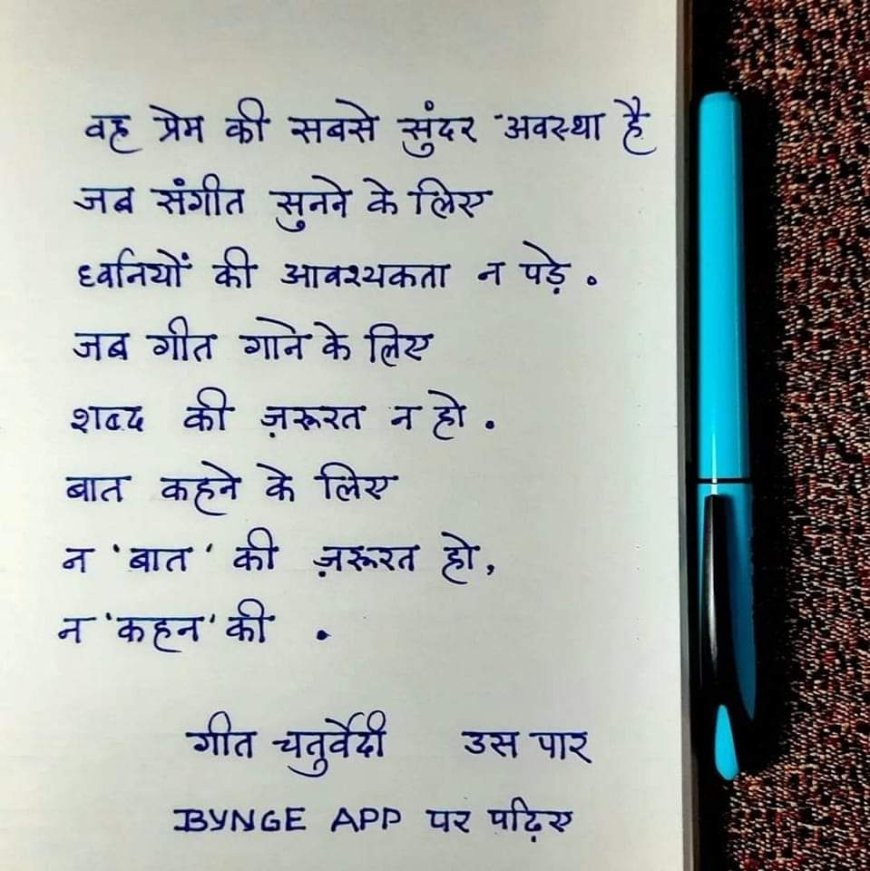 वह प्रेम की सबसे सुंदर अवस्था है
जब संगीत सुनने के लिए
ध्वनियों की आवश्यकता न पड़े .
जब गीत गाने के लिए
शब्द की ज़रूरत न हो .
बात कहने के लिए
न 'बात' की ज़रूरत हो,
न 'कहन' की .
गीत चतुर्वेदी उस पार
BYNGE APP पर पढ़िए